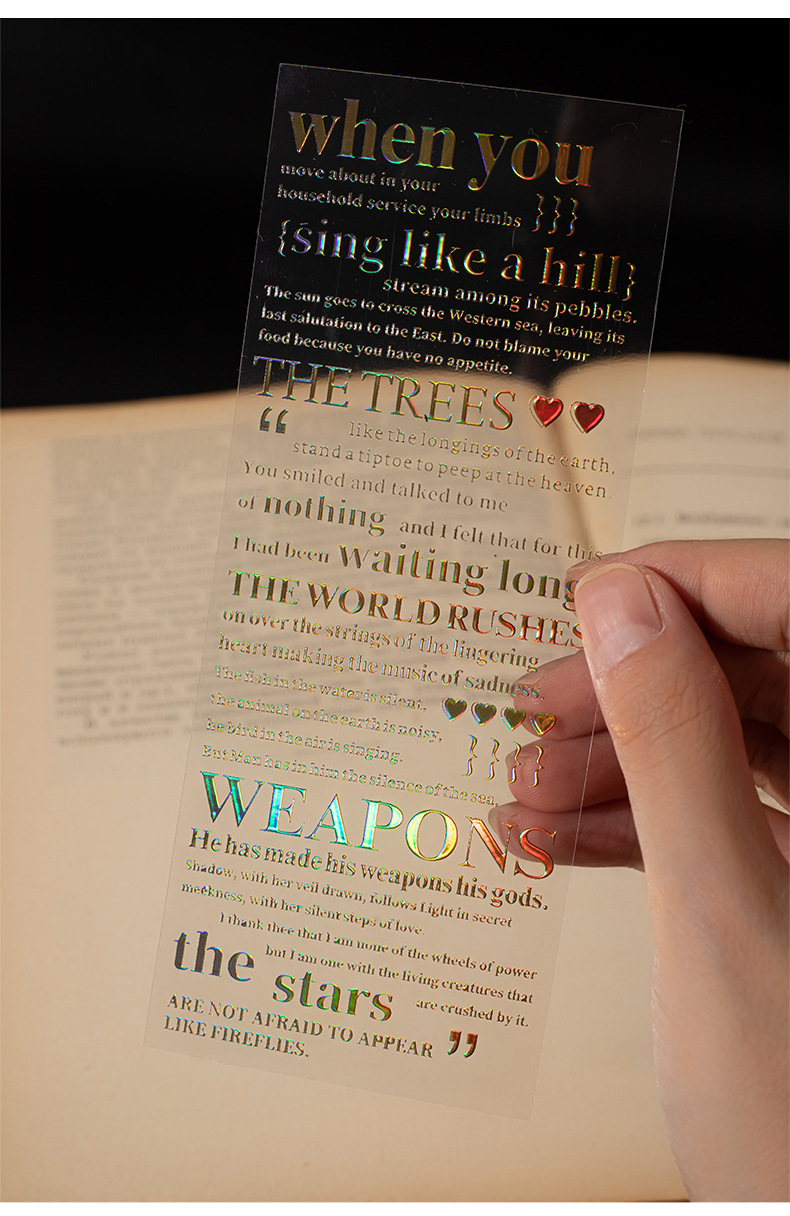 when you
move about in your
household service your limbs }}}
{sing like a hill}
stream among its pebbles.
The sun goes to cross the Western sea, leaving its
last salutation to the East. Do not blame your
food because you have no appetite.
THE TREES
“
like the longings of the earth,
stand a tiptoe to peep at the heaven.
You smiled and talked to me
of nothing and I felt that for this
I had been waiting long
THE WORLD RUSHES
on over the strings of the lingering
heart making the music of sadness.
The fish in the water is silent,
the animal on the earth is noisy,
he bird in the air is singing.
}}}}
But Man has in him the silence of the sea,
WEAPONS
He has made his weapons his gods.
Shadow, with her veil drawn, follows Light in secret
meekness, with her silent steps of love.
I thank thee that I am none of the wheels of power
but I am one with the living creatures that
are crushed by it.
the stars
ARE NOT AFRAID TO APPEAR
LIKE FIREFLIES.
”